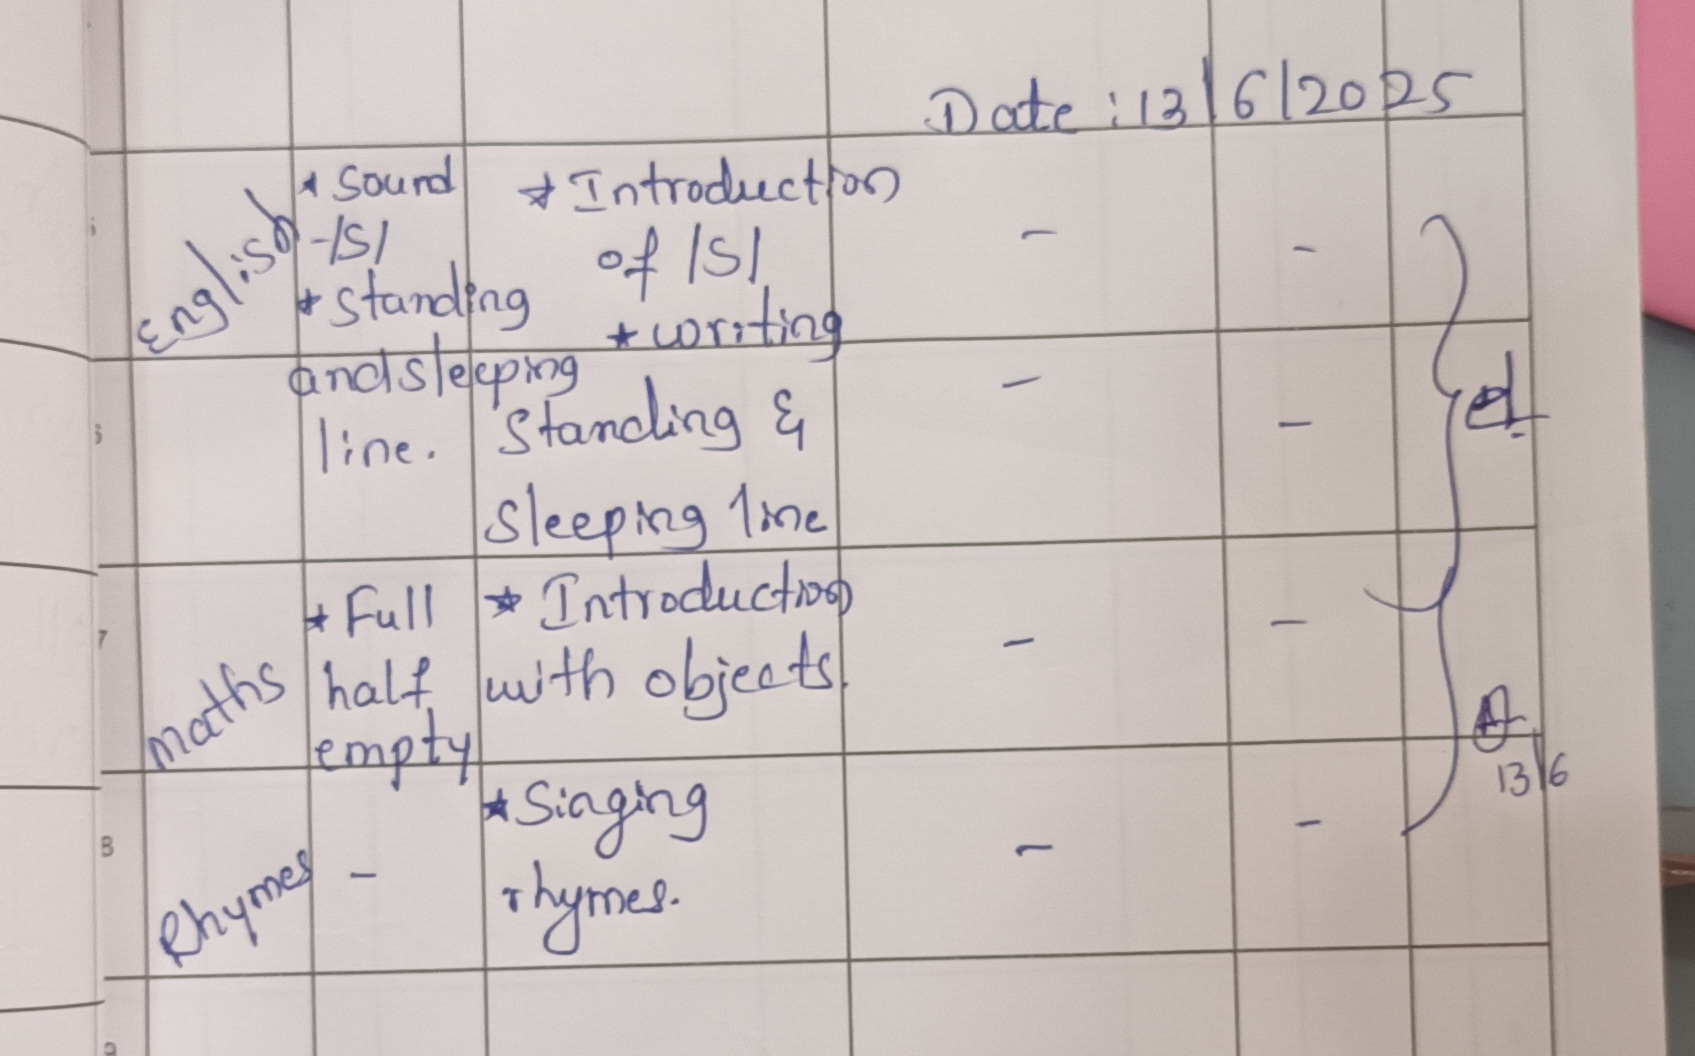 Date : 13/6/2025
English
* Sound
-/S/
* Standing
and sleeping
line.
* Introduction
of /S/
* writing
Standing &
Sleeping line
-
-
-
-
7
maths
* Full
half
empty
* Introduction
with objects.
-
-
8
Rhymes
-
* Singing
rhymes.
-
-
13/6